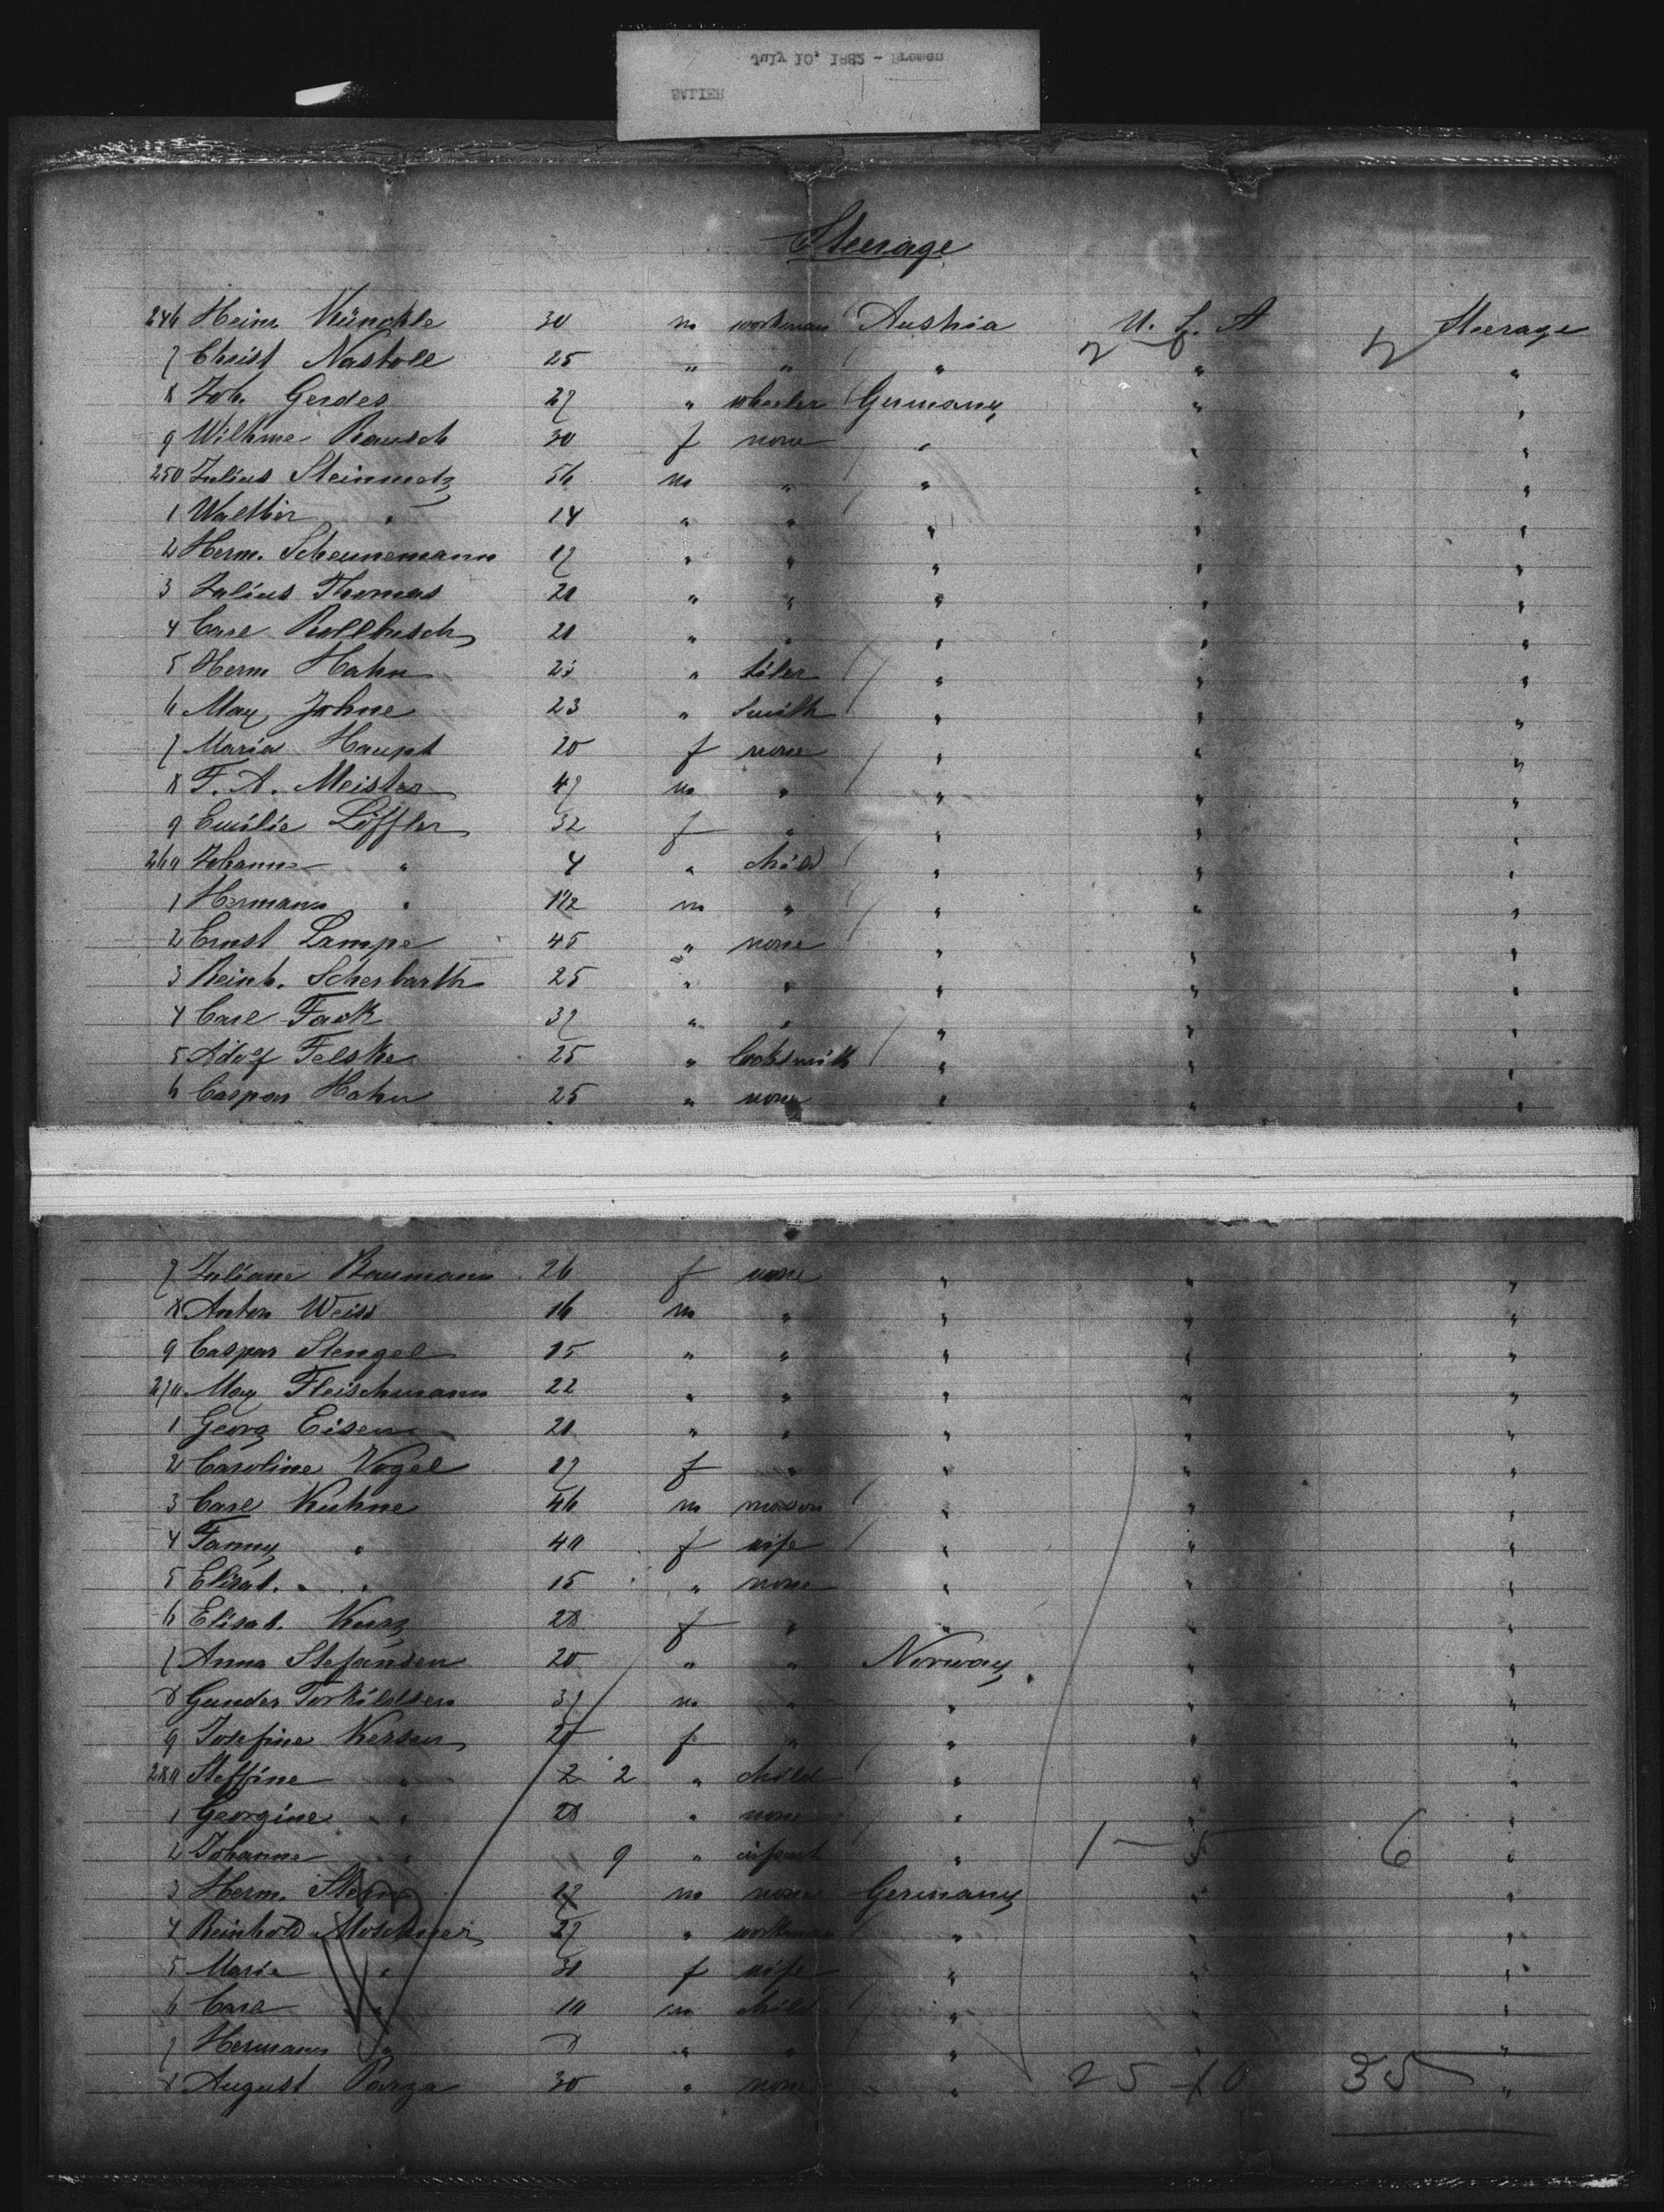 July 10, 1882 - Bremen
SALIER
Steerage
246 Heinr. Künckle 30 m workman Austria U. S. A Steerage
7 Christ Nastoll 25 " " " " "
8 Joh. Gerdes 27 " wheeler Germany " "
9 Wilhme Rausch 30 f none " " "
250 Julius Steinmetz 56 m " " " "
1 Walther " 14 " " " " "
2 Herm. Scheunemann 17 " " " " "
3 Julius Thomas 21 " " " " "
4 Carl Rollbusch 21 " " " " "
5 Herm Hahn " tiler " " "
6 Max Johne 23 " Smith " " "
7 Maria Haupt 20 f none " " "
8 F. A. Meister 47 m " " " "
9 Emilie Löffler 32 f " " " "
260 Johanne " 4 " child " " "
1 Hermann " 1 1/2 m " " " "
2 Ernst Lampe 45 " none " " "
3 Reinh. Scherbarth 25 " " " " "
4 Carl Fack 37 " " " " "
5 Adolf Felske 25 " locksmith " " "
6 Caspar Hahn 25 " none " " "
7 Juliane Baumann 26 f none " " "
8 Anton Weiss 16 m " " " "
9 Caspar Stengel 15 " " " " "
270 Max Fleischmann 22 " " " " "
1 Georg Eisen 21 " " " " "
2 Caroline Vogel 17 f " " " "
3 Carl Kuhne 46 m mason " " "
4 Fanny " 40 f wife " " "
5 Elisab. " 15 " none " " "
6 Elisab. Kurz 28 f " " " "
7 Anna Stefansen 20 " " Norway " "
8 Gunder Torkildsen 37 m " " " "
9 Josefine Kersen f " " " "
280 Steffine " 2 2 " child " " "
1 Georgine " 28 " none " " "
2 Johanne " 9 " infant " 1 - 5 6 "
3 Herm. 17 m none Germany " "
4 Reinhold Moschner 27 " workman " " "
5 Marie " f wife " " "
6 Carl " 10 m child " " "
7 Hermann " 8 " " " " "
8 August Parza 30 " none " 25 10 35 "